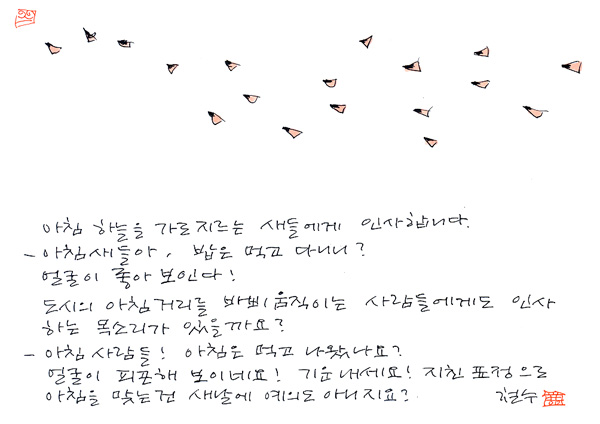 아침 하늘을 가로지르는 새들에게 인사합니다.
- 아침새들아, 밥은 먹고 다니니?
얼굴이 좋아 보인다!
도시의 아침거리를 바삐 움직이는 사람들에게도 인사
하는 목소리가 있을까요?
- 아침 사람들! 아침은 먹고 나왔나요?
얼굴이 피곤해 보이네요! 기운내세요! 지친 표정으로
아침을 맞는건 새날에 예의도 아니지요? 철수